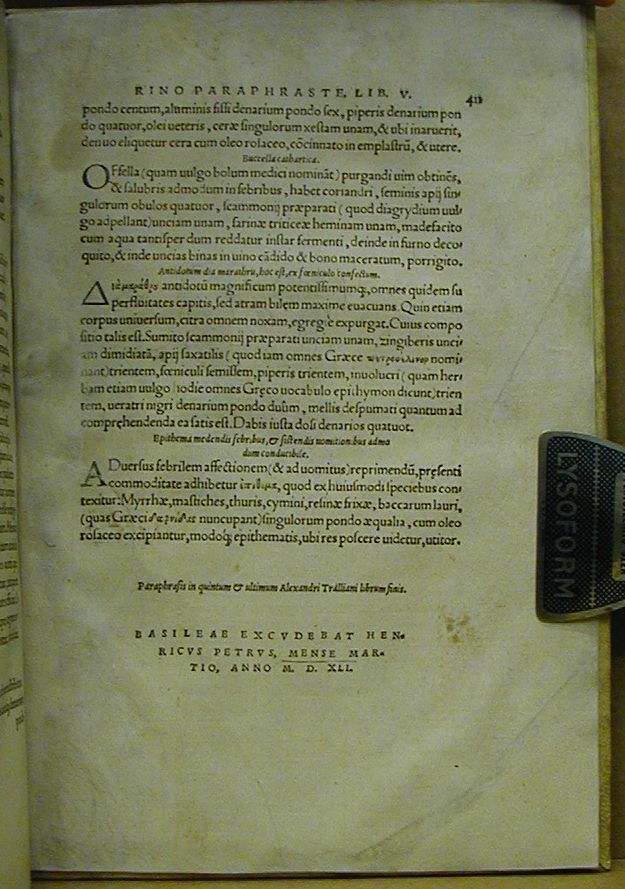 RINO PARAPHRASTE, LIB. V. 411
pondo centum, aluminis fissi denarium pondo sex, piperis denarium pon
do quatuor, olei ueteris, ceræ singulorum xestam unam, & ubi inaruerit,
denuo eliquetur cera cum oleo rosaceo, cōcinnato in emplastrū, & utere.
Buccella cathartica.
OFfella (quam uulgo bolum medici nomināt) purgandi uim obtinēs,
& salubris admodum in febribus, habet coriandri, seminis apij sin
gulorum obulos quatuor, scammonij præparati (quod diagrydium uul
go adpellant) unciam unam, farinæ triticeæ heminam unam, madefacito
cum aqua tantisper dum reddatur instar fermenti, deinde in furno deco
quito, & inde uncias binas in uino cādido & bono maceratum, porrigito.
Antidotum dia marathru, hoc est, ex fœniculo confectum.
Διὰ μαράθρου antidotū magnificum potentissimumq;, omnes quidem su
perfluitates capitis, sed atram bilem maxime euacuans. Quin etiam
corpus uniuersum, citra omnem noxam, egregie expurgat. Cuius compo
sitio talis est. Sumito scammonij præparati unciam unam, zingiberis unci
am dimidiatā, apij saxatilis (quod iam omnes Græce nomi
nant) trientem, fœniculi semissem, piperis trientem, inuolucri (quam her
bam etiam uulgo hodie omnes Gręco uocabulo epithymon dicunt) trien
tem, ueratri nigri denarium pondo duûm, mellis despumati quantum ad
comprehendenda ea satis est. Dabis iusta dosi denarios quatuor.
Epithema medendis febribus, & sistendis uomitionibus admo
dum conducibile.
ADuersus febrilem affectionem (& ad uomitus) reprimendū, pręsenti
commoditate adhibetur ἐπίθεμα, quod ex huiusmodi speciebus con
texitur: Myrrhæ, mastiches, thuris, cymini, resinæ frixæ, baccarum lauri,
(quas Græci δαφνίδας nuncupant) singulorum pondo æqualia, cum oleo
rosaceo excipiantur, modoq; epithematis, ubi res poscere uidetur, utitor.
Paraphrasis in quintum & ultimum Alexandri Tralliani librum finis.
BASILEAE EXCVDEBAT HEN-
RICVS PETRVS, MENSE MAR-
TIO, ANNO M. D. XLI.
LYSOFORM